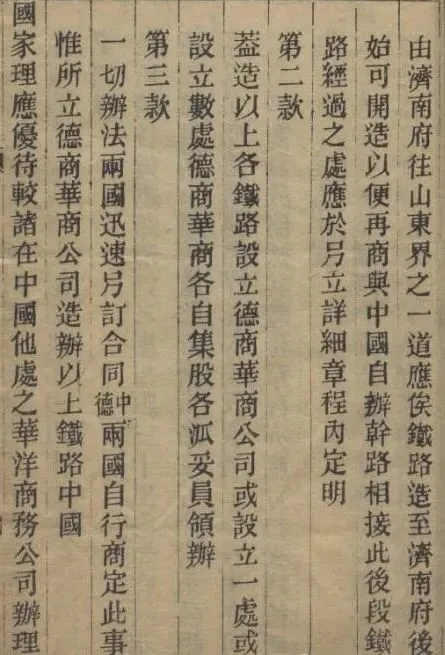 由濟南府往山東界之一道應俟鐵路造至濟南府後
始可開造以便再商與中國自辦幹路相接此後段鐵
路經過之處應於另立詳細章程內定明
第二款
蓋造以上各鐵路設立德商華商公司或設立一處或
設立數處德商華商各自集股各派妥員領辦
第三款
一切辦法兩國迅速另訂合同中德兩國自行商定此事
惟所立德商華商公司造辦以上鐵路中國
國家理應優待較諸在中國他處之華洋商務公司辦理